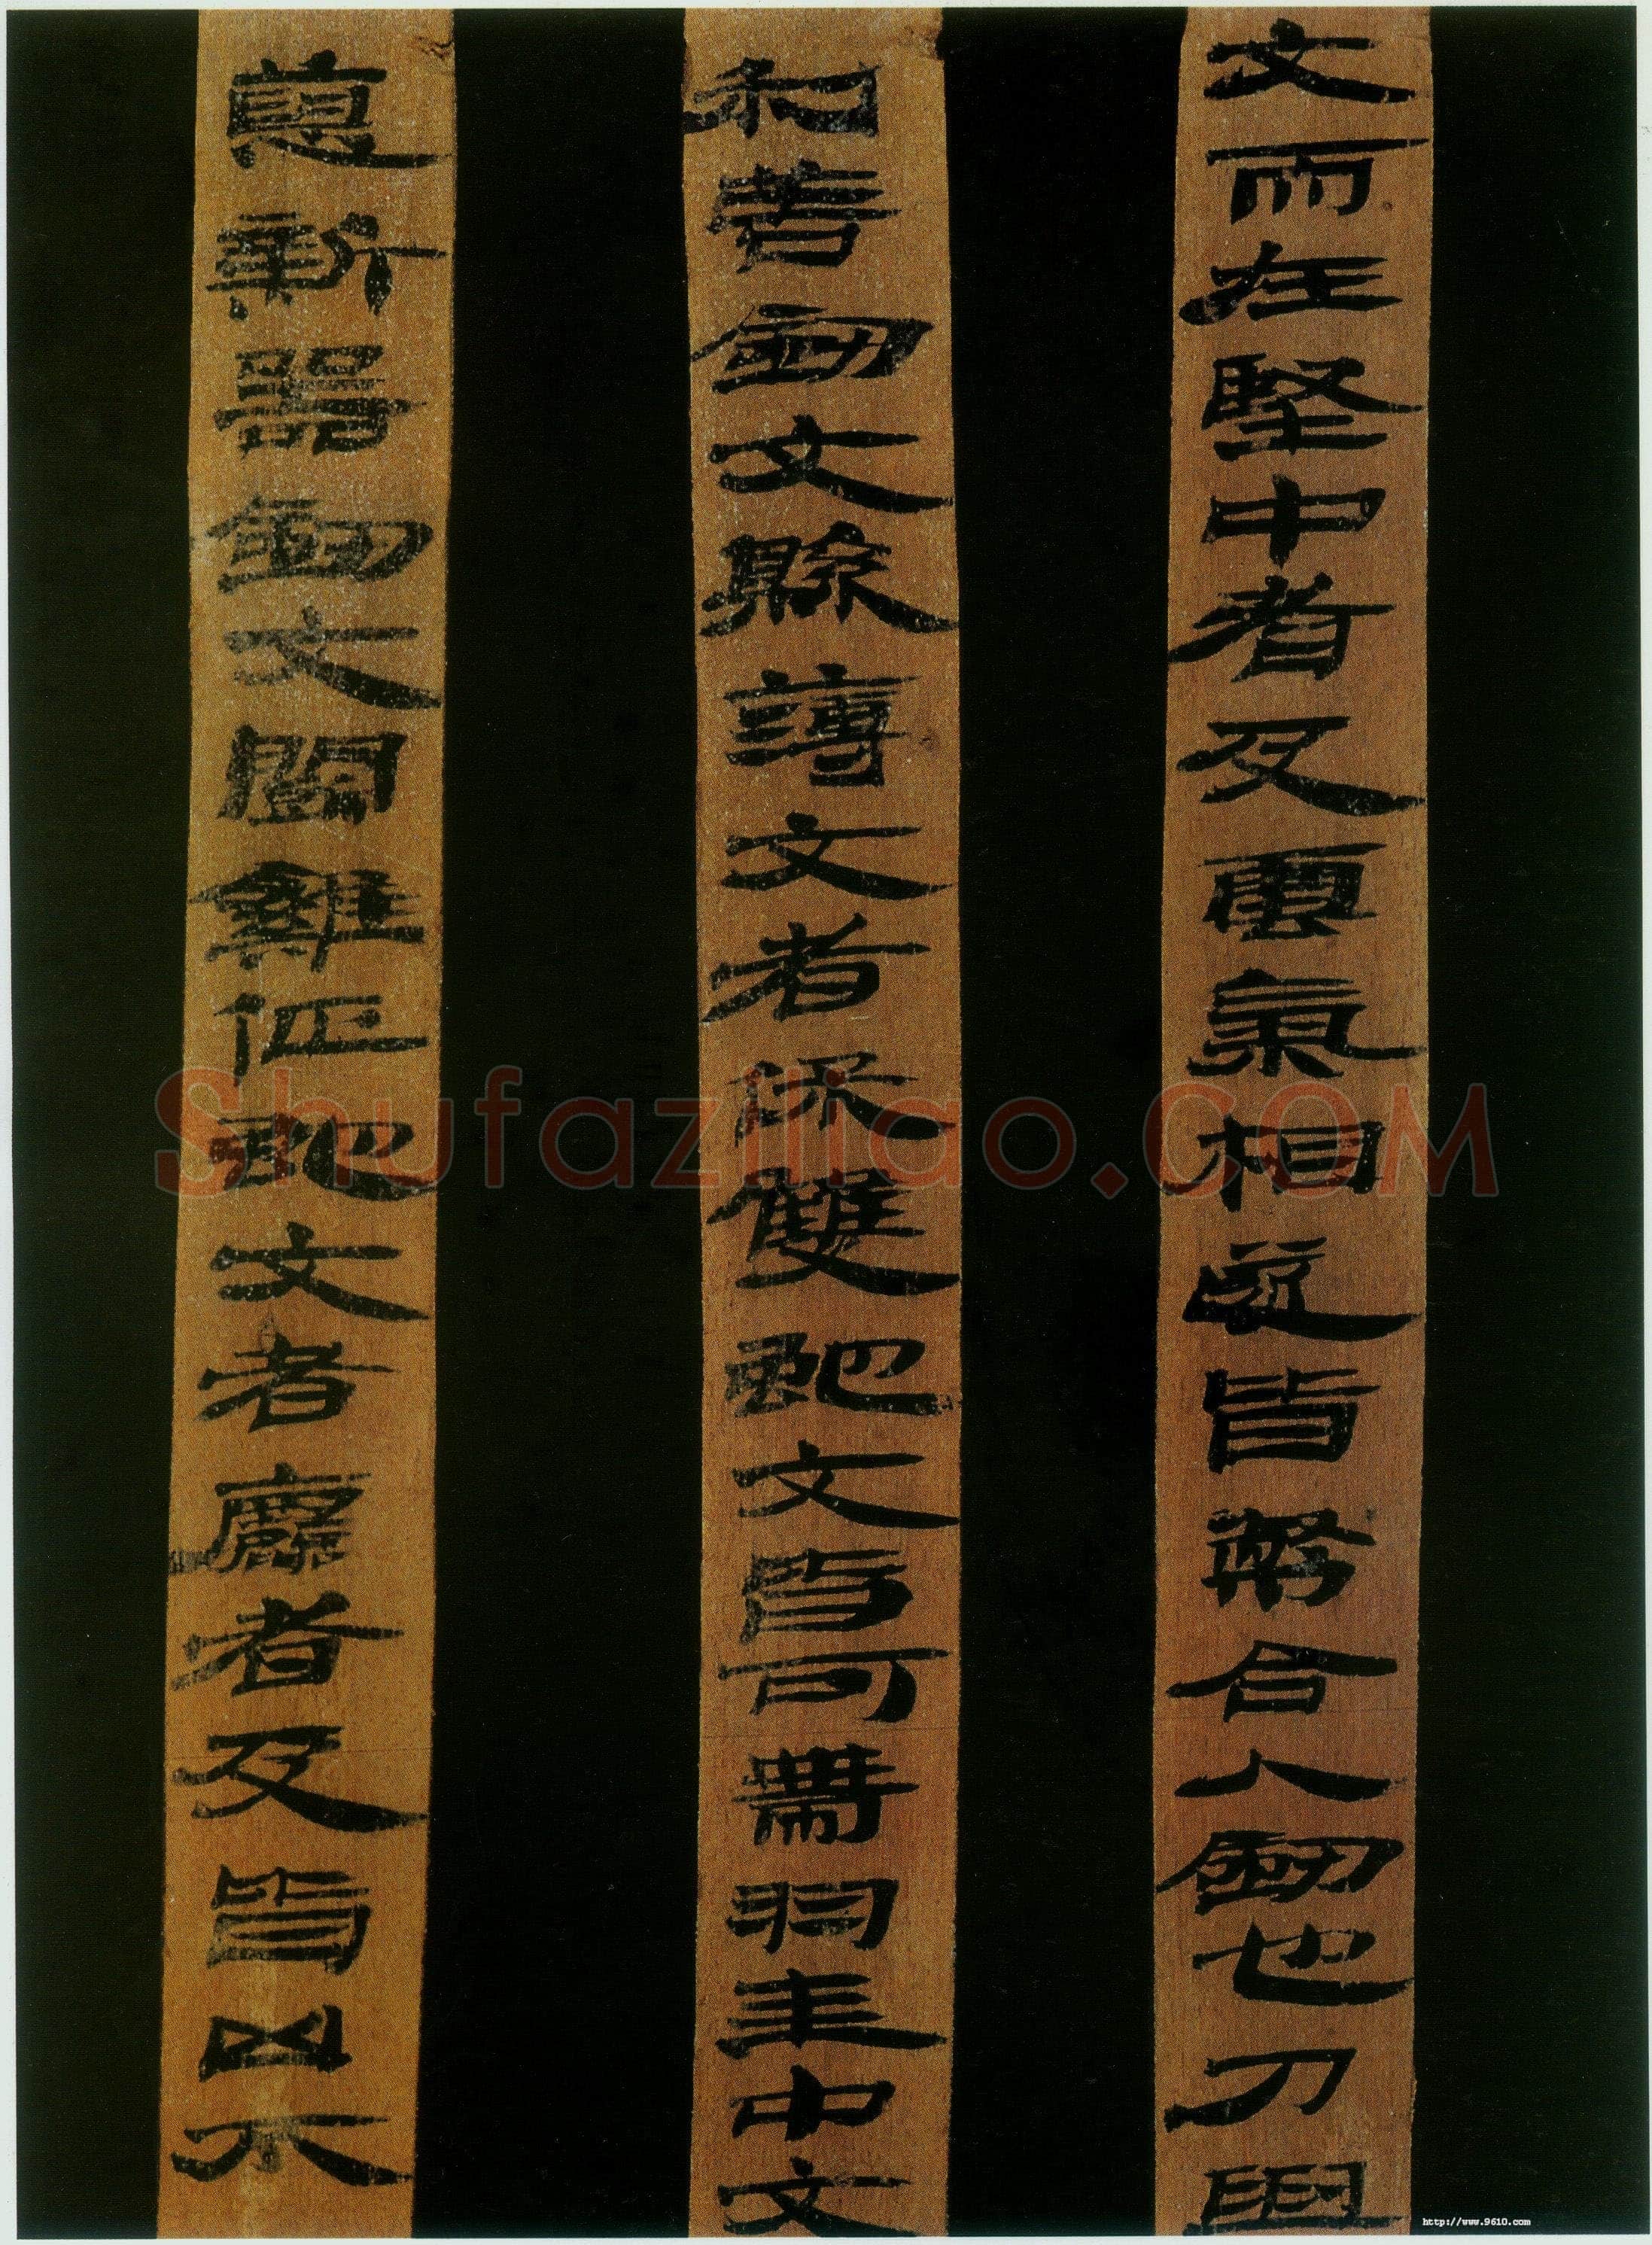 文而在堅中者及雲氣相遂皆幣合人劍也刀與
利善劍文縣薄文者保雙蛇文皆可帶羽圭中文
新器劍文鬭雞佂蛇文者麤者及皆凶不
Shufaziliao.COM
http://www.9610.com